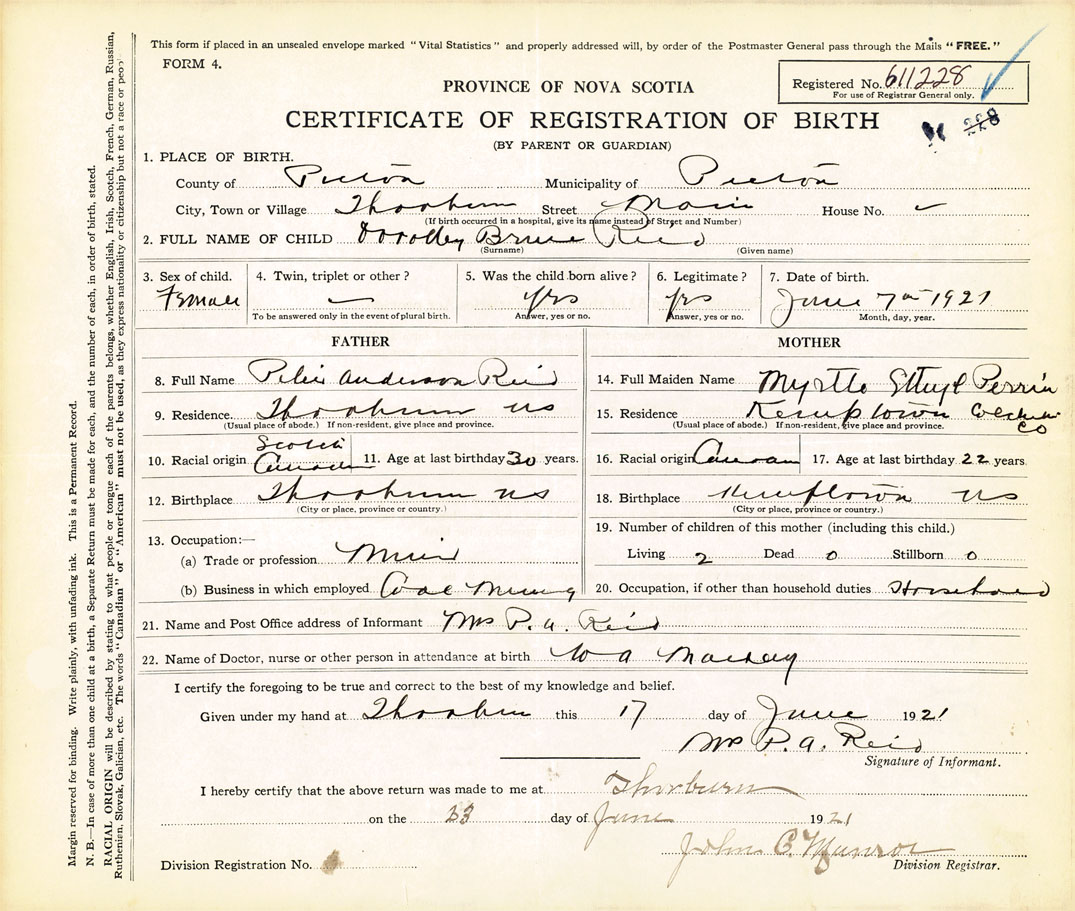 This form if placed in an unsealed envelope marked "Vital Statistics" and properly addressed will, by order of the Postmaster General pass through the Mails "FREE."
FORM 4.
PROVINCE OF NOVA SCOTIA
Registered No. 611228
For use of Registrar General only.
CERTIFICATE OF REGISTRATION OF BIRTH
228
(BY PARENT OR GUARDIAN)
1. PLACE OF BIRTH.
County of Pictou Municipality of Pictou
City, Town or Village Thorburn Street Main House No.
(If birth occurred in a hospital, give its name instead of Street and Number)
2. FULL NAME OF CHILD Dorothy Bruce Reid
(Surname) (Given name)
3. Sex of child. 4. Twin, triplet or other? 5. Was the child born alive? 6. Legitimate? 7. Date of birth.
Female — yes yes June 7th 1921
To be answered only in the event of plural birth. Answer, yes or no. Answer, yes or no. Month, day, year.
FATHER MOTHER
8. Full Name Peter Anderson Reid 14. Full Maiden Name Myrtle Ethyl Perrin
9. Residence. Thorburn NS 15. Residence Kemptown Colchester Co
(Usual place of abode.) If non-resident, give place and province. (Usual place of abode.) If non-resident, give place and province.
10. Racial origin Scotch Canadian 11. Age at last birthday 30 years. 16. Racial origin 17. Age at last birthday 22 years
12. Birthplace Thorburn NS 18. Birthplace Kemptown NS
(City or place, province or country.) (City or place, province or country.)
19. Number of children of this mother (including this child.)
13. Occupation:—
(a) Trade or profession Miner Living 2 Dead 0 Stillborn 0
(b) Business in which employed Coal Mining 20. Occupation, if other than household duties Household
21. Name and Post Office address of Informant Mrs P. A. Reid
22. Name of Doctor, nurse or other person in attendance at birth W A
I certify the foregoing to be true and correct to the best of my knowledge and belief.
Given under my hand at Thorburn this 17 day of June 1921
Mrs P. A. Reid
Signature of Informant.
I hereby certify that the above return was made to me at Thorburn
on the 23 day of June 1921
John C. Munroe
Division Registration No. Division Registrar.
Margin reserved for binding. Write plainly, with unfading ink. This is a Permanent Record.
N. B.—In case of more than one child at a birth, a Separate Return must be made for each, and the number of each, in order of birth, stated.
RACIAL ORIGIN will be described by stating to what people or tongue each of the parents belongs, whether English, Irish, Scotch, French, German, Russian,
Ruthenian, Slovak, Galician, etc. The words "Canadian" or "American" must not be used, as they express nationality or citizenship but not a race or peop